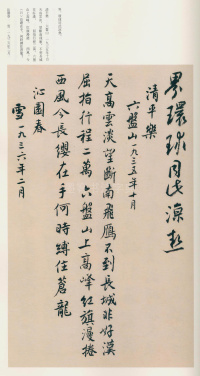 界環球同此涼热
清平樂
六盤山一九三五年十月
天高雲淡望斷南飛雁不到長城非好漢
屈指行程二萬六盤山上高峰紅旗漫捲
西風今長纓在手何時縛住蒼龍
沁園春
雪一九三六年二月